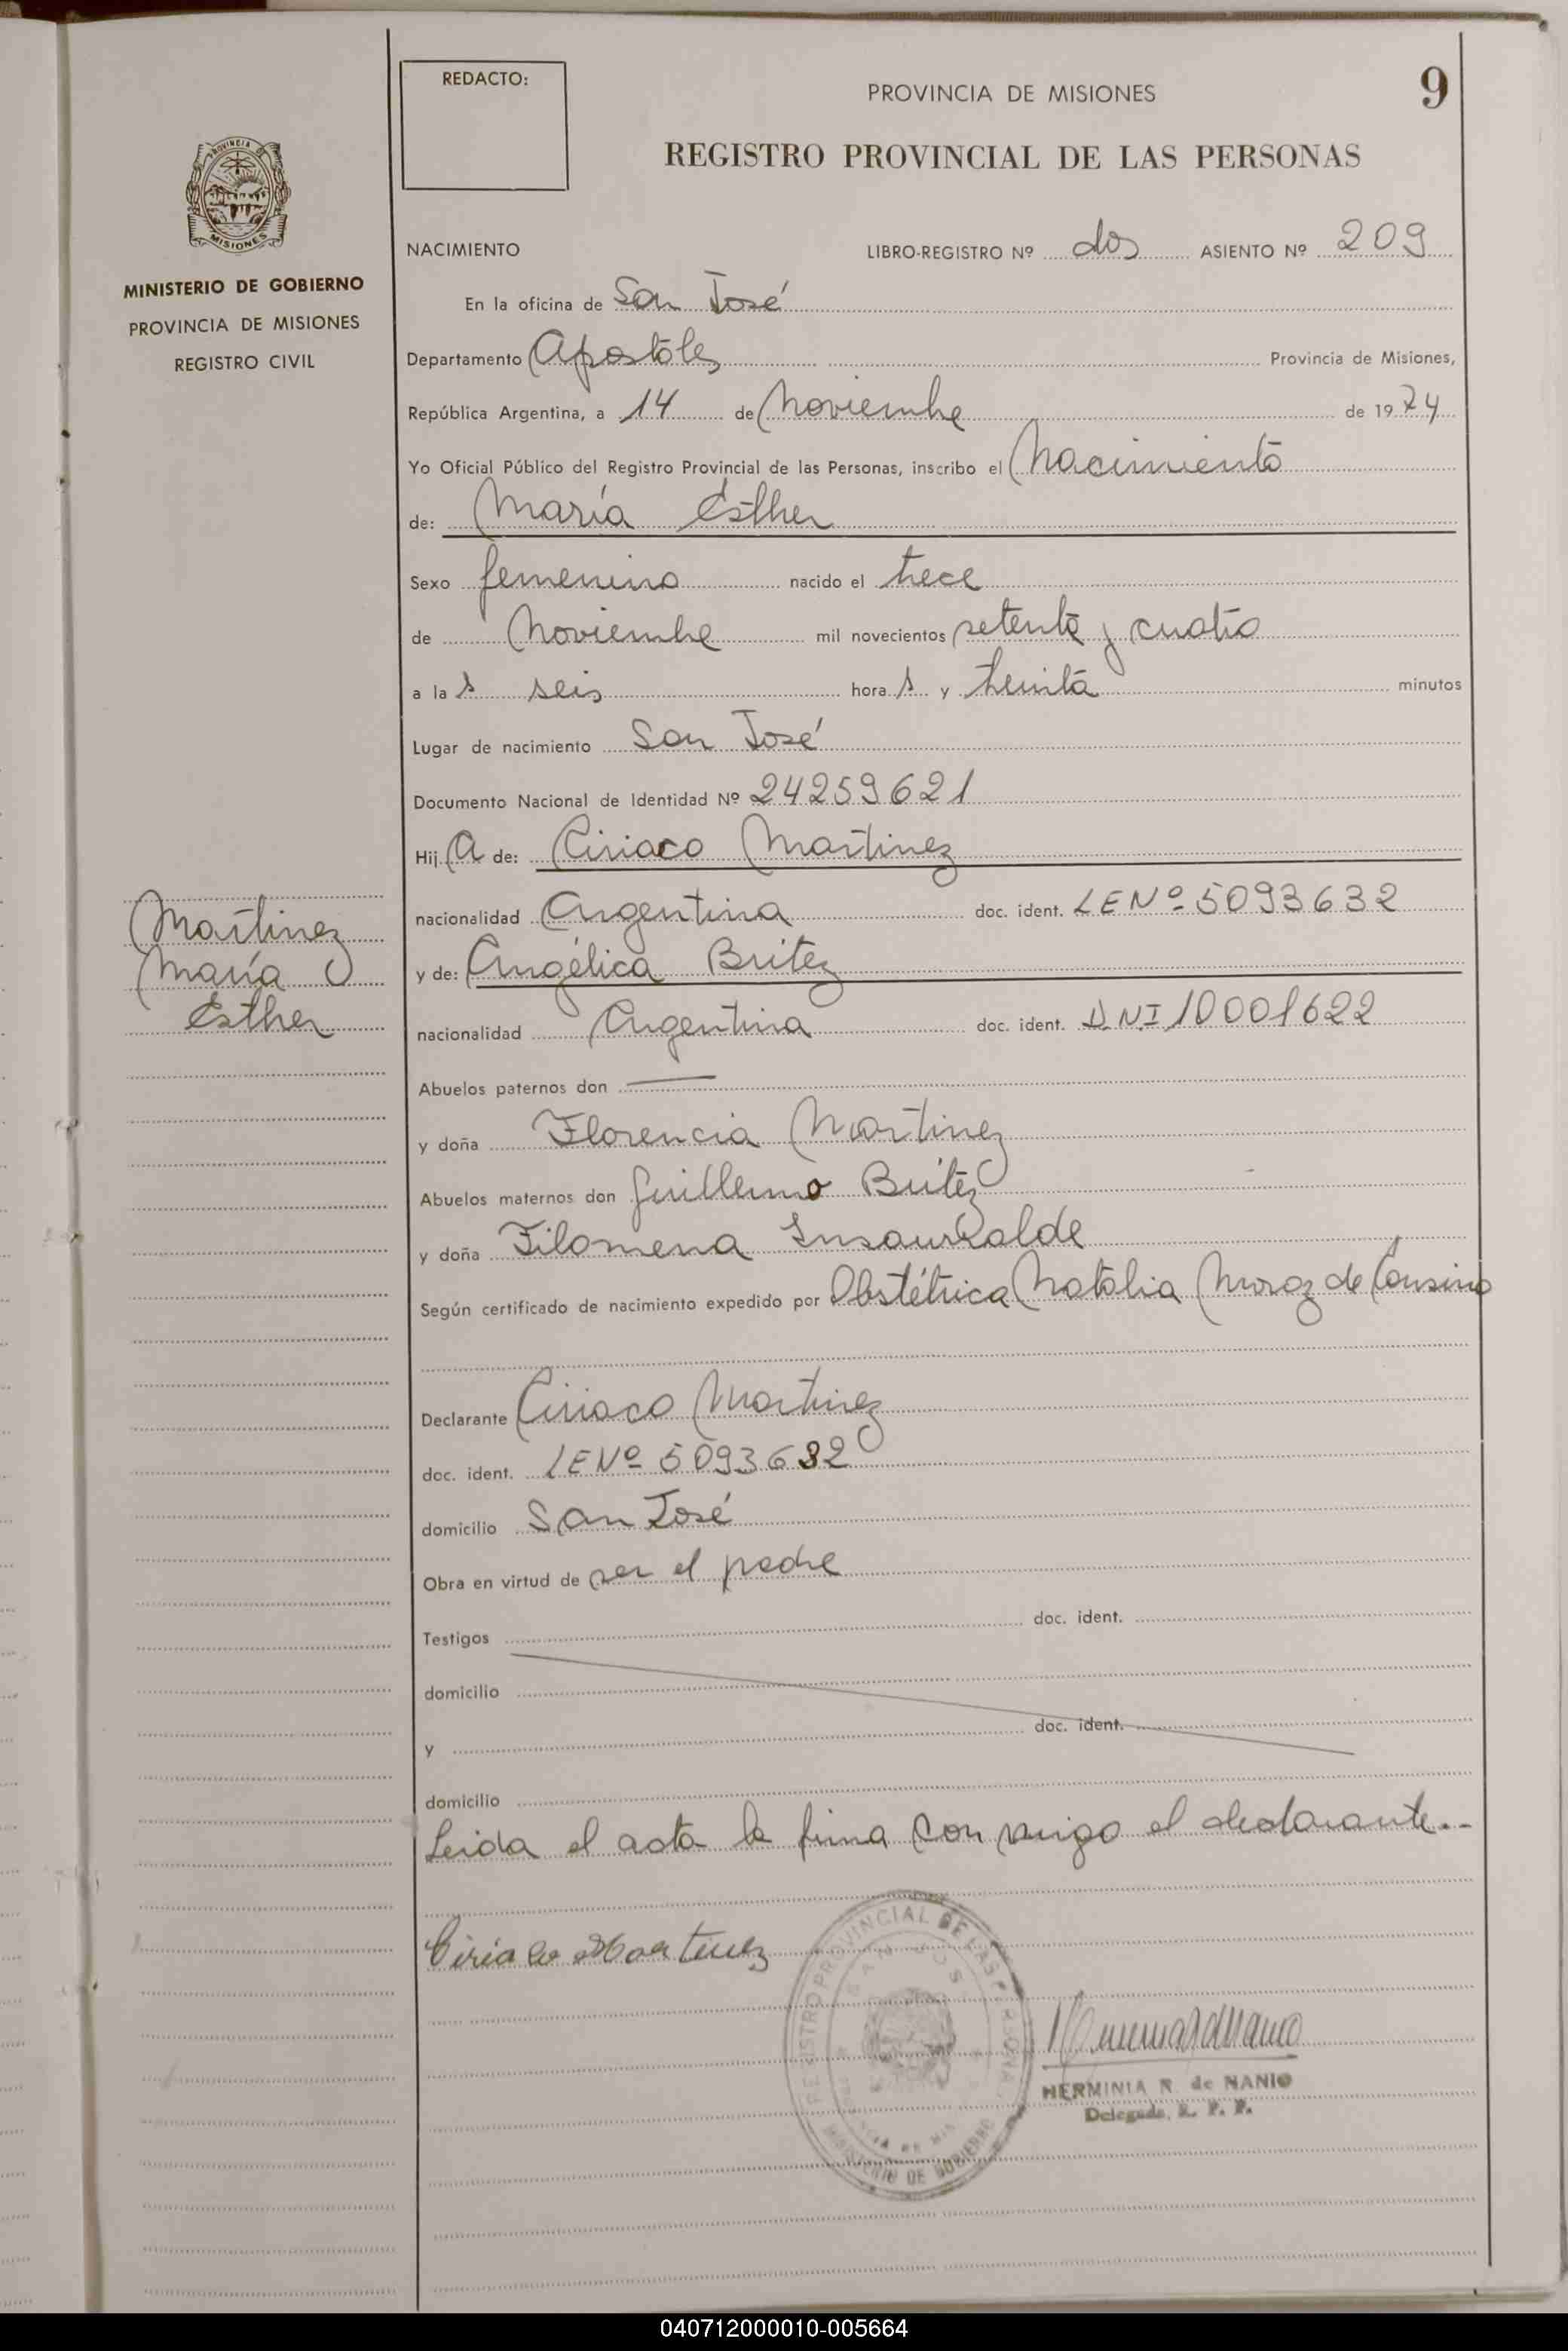 9
REDACTO:
PROVINCIA DE MISIONES
REGISTRO PROVINCIAL DE LAS PERSONAS
PROVINCIA
MISIONES
MINISTERIO DE GOBIERNO
PROVINCIA DE MISIONES
REGISTRO CIVIL
NACIMIENTO LIBRO-REGISTRO Nº dos ASIENTO Nº 209
En la oficina de San José
Departamento Apostoles Provincia de Misiones,
República Argentina, a 14 de Noviembre de 1974
Yo Oficial Público del Registro Provincial de las Personas, inscribo el Nacimiento
de: María Esther
Sexo femenino nacido el trece
de Noviembre mil novecientos setenta y cuatro
a la s seis hora s y treinta minutos
Lugar de nacimiento San José
Documento Nacional de Identidad Nº 24259621
Hij A de: Ciriaco Martinez
nacionalidad Argentina doc. ident. LE Nº 5093632
y de: Angélica Britez
nacionalidad Argentina doc. ident. D.N.I 10001622
Martinez
María
Esther
Abuelos paternos don —
y doña Florencia Martinez
Abuelos maternos don Guillermo Britez
y doña Filomena Insaurralde
Según certificado de nacimiento expedido por Obstétrica Natalia Moroz de
Declarante Ciriaco Martinez
doc. ident. LE Nº 5093632
domicilio San José
Obra en virtud de ser el padre
Testigos doc. ident.
domicilio
y doc. ident.
domicilio
Leida el acta la firma con migo el declarante..
Ciriaco Martinez
REGISTRO PROVINCIAL DE LAS PERSONAS
SAN JOSE
MINISTERIO DE GOBIERNO
HERMINIA R. de NANIO
Delegada, R. P. P.
040712000010-005664